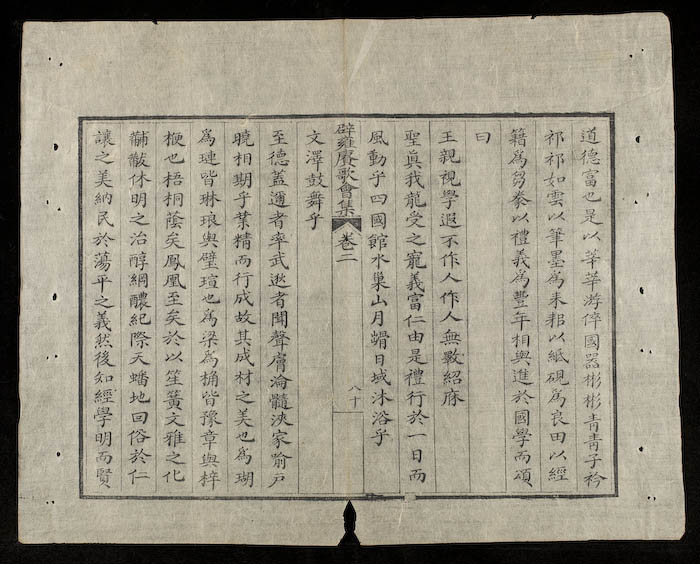 道德富也是以莘莘游倅國器彬彬青青子衿
祁祁如雲以筆墨為耒耜以紙硯為良田以經
籍為芻豢以禮義為豐年相與進於國學而頌
曰
王親視學遐不作人作人無斁紹庥
聖真我龍受之寵義富仁由是禮行於一日而
風動乎四國館水巢山月𡻕日域沐浴乎
辟雍賡歌會集
卷二
八十
文澤鼓舞乎
至德蓋邇者率武逖者聞聲膚淪髓浹家喻戶
曉相期乎業精而行成故其成材之美也為瑚
為璉皆琳琅與璧瑄也為梁為桷皆豫章與梓
楩也梧桐蔭矣鳳凰至矣於以笙簧文雅之化
黼黻休明之治醇綱醲紀際天蟠地回俗於仁
讓之美納民於蕩平之義然後如經學明而賢